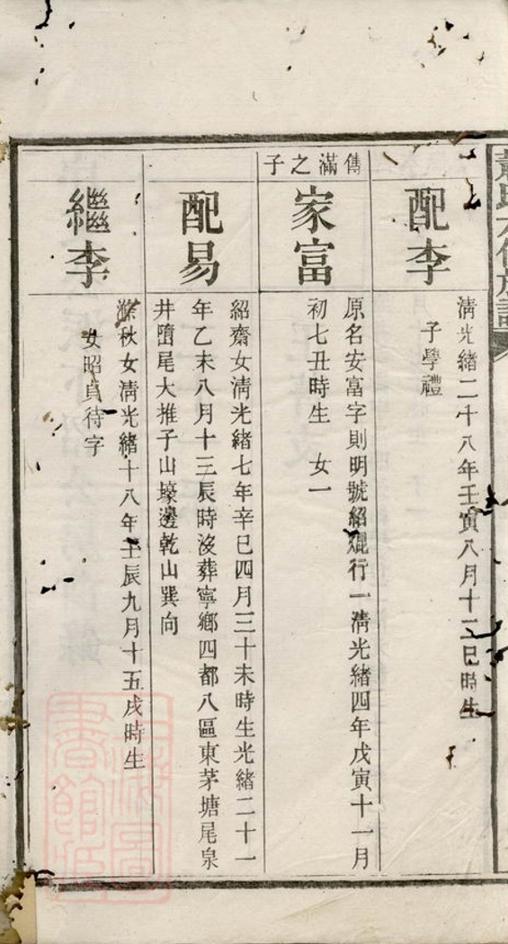 配李
清光緒二十八年壬寅八月十二巳時生
子學禮
傳滿之子
家富
原名安富字則明號紹焜行一清光緒四年戊寅十一月
初七丑時生 女一
配易
紹齋女清光緒七年辛巳四月三十未時生光緒二十一
年乙未八月十三辰時沒葬寧鄉四都八區東茅塘尾泉
井墖尾大推子山壕邊乾山巽向
繼李
滌秋女清光緒十八年壬辰九月十五戌時生
女昭貞待字